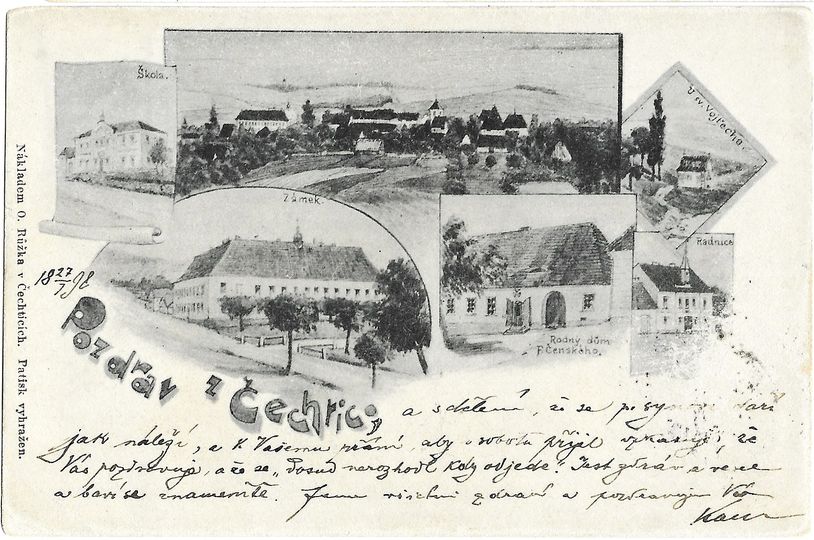 Škola.
U sv. Vojtěcha.
Zámek.
Radnice
Rodný dům
P. Čenského.
Nákladem O. Růžka v Čechticích. Patisk vyhražen.
18 27/7 98
Pozdrav z Čechtic;
a sdělení, že se p. synovi daří
jak náleží, a k Vašemu přání, aby v sobotu přijel vzkazuje, že
Vás pozdravuje, a že se „dosud nerozhodl kdy odjede“. Jest zdráv a vesel
a baví se znamenitě. Jsme všichni zdrávi a pozdravujem Vás